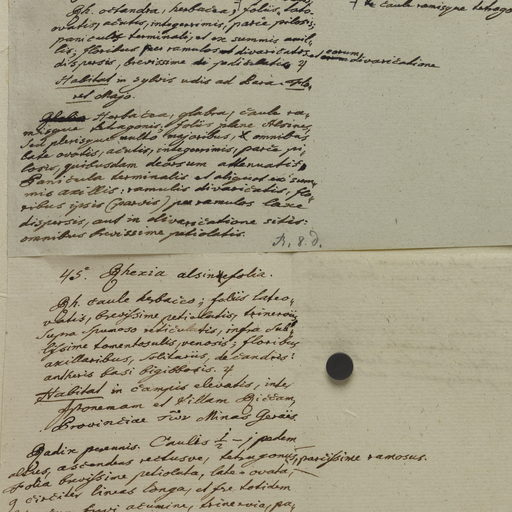 Rh. octandra, herbacea, foliis, lato-
ovatis, acutis, integerrimis, parce pilosis;
paniculis terminali, et ex summis axil-
lis; floribus per ramulos divaricatos, et eorum
dispersis, brevissime pedicellatis. ♃
divaricatione
+ te caule ramisque tetrago
Habitat in sylvis udis ad Pará. Flo-
ret Majo.
Herbacea, glabra, caule ra-
misque tetragonis, foliis plane Alsines
sed plerisque multo majoribus, omnibus
late ovatis, acutis, integerrimis, parce pi-
losis, quibusdam deorsum attenuatis.
Panicula terminalis et aliquot ex sum-
mis axillis: ramulis divaricatis, flo-
ribus ipsis (parvis) per ramulos laxe
dispersis, aut in divaricatione sitis:
omnibus brevissime petiolatis.
R. 8. d.
45.ª Rhexia alsinefolia.
Rh. caule herbaceo; foliis lateo-
vatis, brevissime petiolatis, trinerviis
supra spumoso reticulatis, infra sub-
tilissime tomentosulis, venosis; floribus
axillaribus, solitariis, decandris:
antheris basi bigibbosis. ♃
Habitat in campis elevatis, inter
Ypanemam et Villam Riccam,
Provinciae Minas Geraës
Radix perennis. Caules ½ - 1 pedem
altus, ascendens rectusve, tetragonus, parcissime ramosus.
Folia brevissime petiolata, late-ovata,
9 circiter lineas longa, et fre totidem
brevi acumine, trinervia, pa-